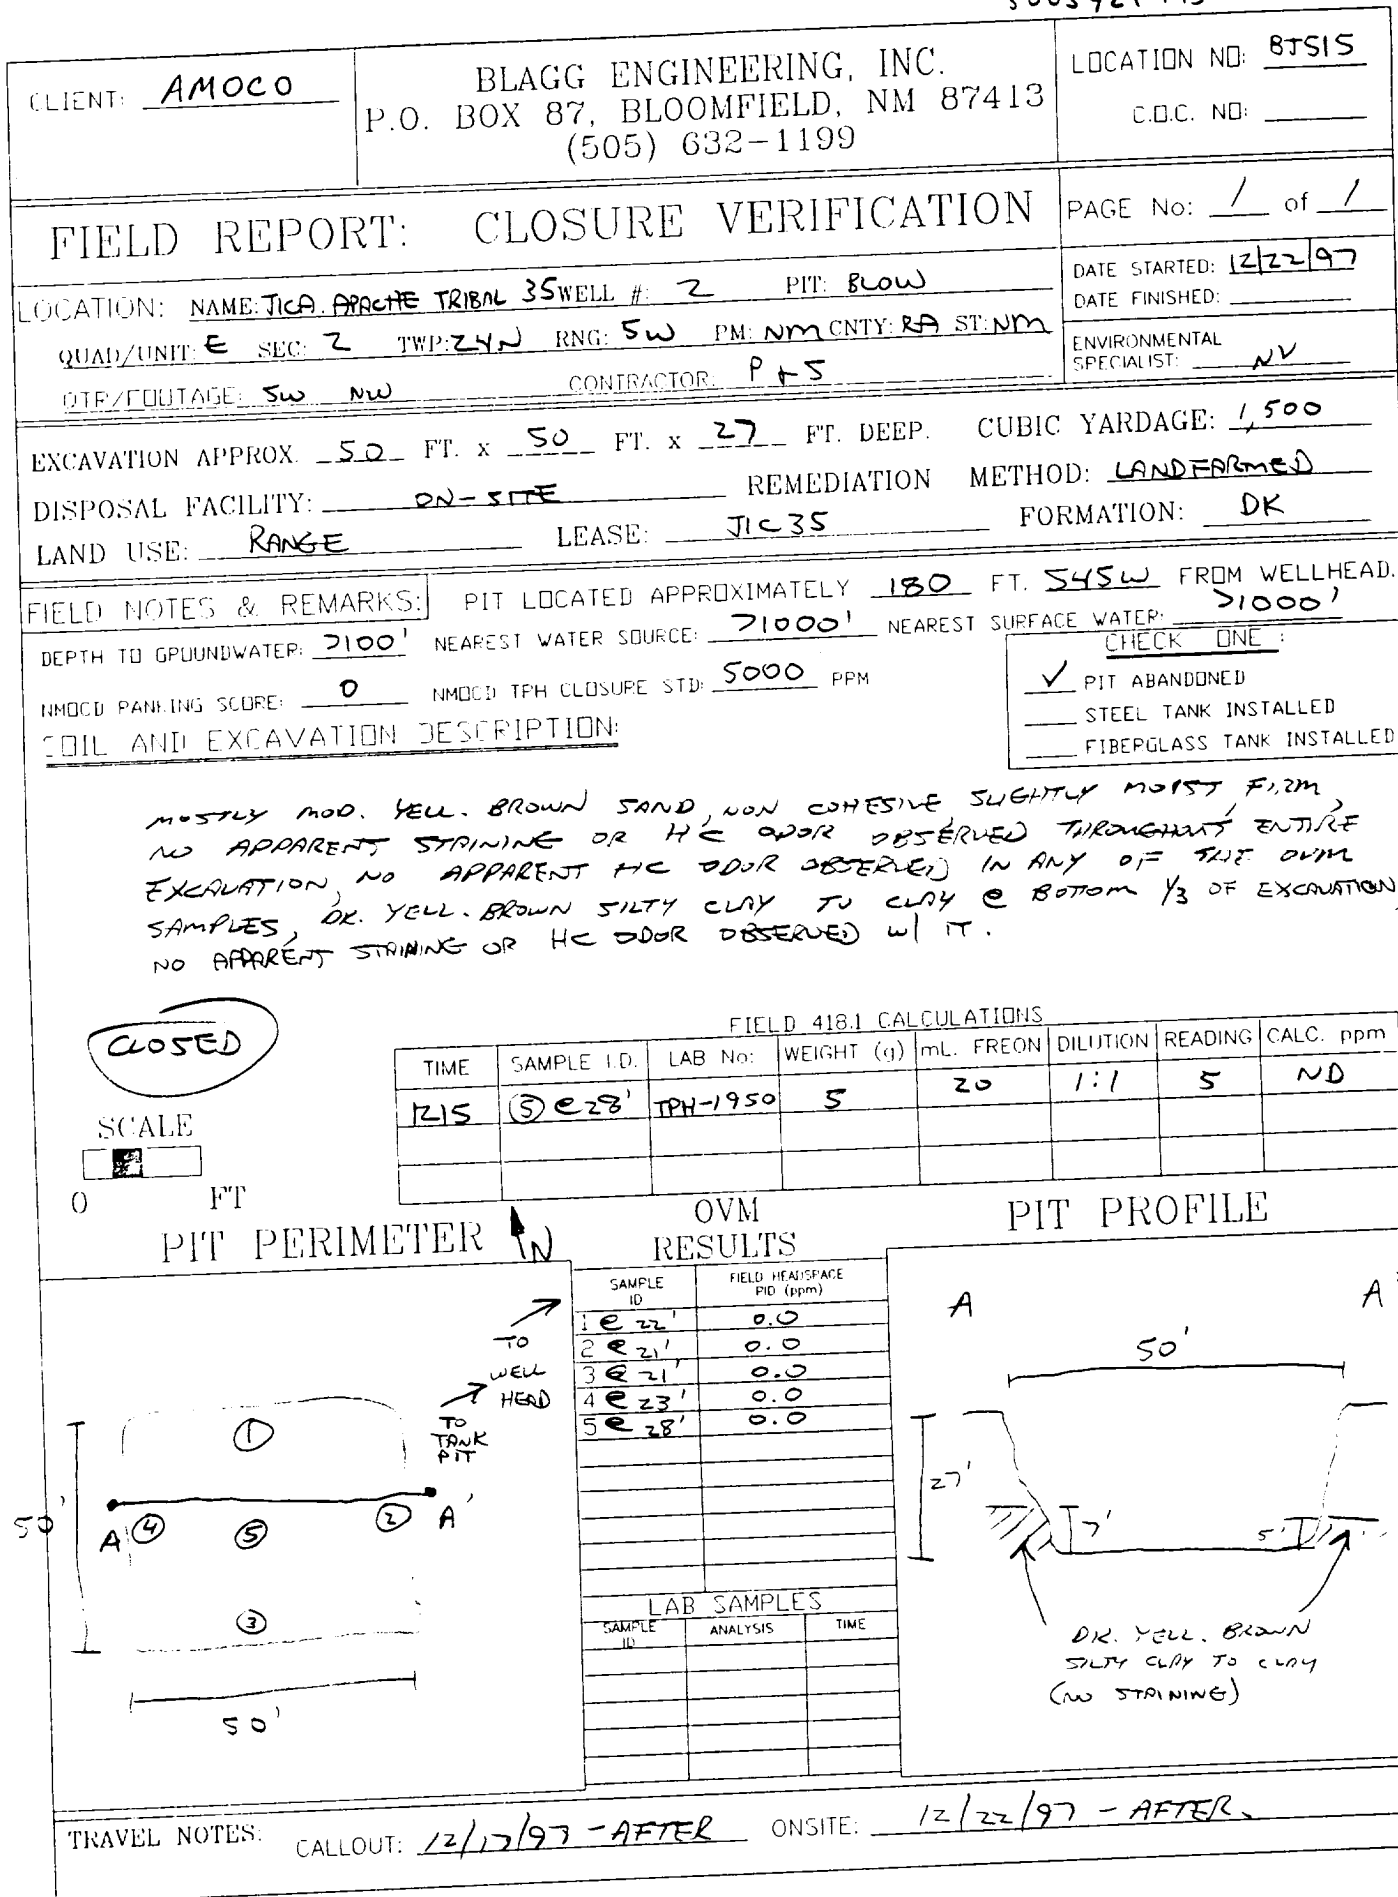 CLIENT: AMOCO
BLAGG ENGINEERING, INC.
P.O. BOX 87, BLOOMFIELD, NM 87413
(505) 632-1199
LOCATION NO: BJ515
C.O.C. NO:
FIELD REPORT: CLOSURE VERIFICATION
PAGE No: 1 of 1
LOCATION: NAME: JICA. APACHE TRIBAL 35 WELL #: 2 PIT: BLOW
QUAD/UNIT: E SEC: 2 TWP: 24N RNG: 5W PM: NM CNTY: RA ST: NM
QTR/FOOTAGE: SW NW CONTRACTOR: P+S
DATE STARTED: 12/22/97
DATE FINISHED:
ENVIRONMENTAL
SPECIALIST: NV
EXCAVATION APPROX. 50 FT. x 50 FT. x 27 FT. DEEP. CUBIC YARDAGE: 1,500
DISPOSAL FACILITY: ON-SITE REMEDIATION METHOD: LANDFARMED
LAND USE: RANGE LEASE: JIC35 FORMATION: DK
FIELD NOTES & REMARKS: PIT LOCATED APPROXIMATELY 180 FT. S45W FROM WELLHEAD.
DEPTH TO GROUNDWATER: >100' NEAREST WATER SOURCE: >1000' NEAREST SURFACE WATER: >1000'
NMOCD RANKING SCORE: 0 NMOCD TPH CLOSURE STD: 5000 PPM
CHECK ONE :
✓ PIT ABANDONED
STEEL TANK INSTALLED
FIBERGLASS TANK INSTALLED
SOIL AND EXCAVATION DESCRIPTION:
MOSTLY MOD. YELL. BROWN SAND, NON COHESIVE SLIGHTLY MOIST, FIRM,
NO APPARENT STAINING OR HC ODOR OBSERVED THROUGHOUT ENTIRE
EXCAVATION, NO APPARENT HC ODOR OBSERVED IN ANY OF THE OVM
SAMPLES, DK. YELL. BROWN SILTY CLAY TO CLAY @ BOTTOM 1/3 OF EXCAVATION,
NO APPARENT STAINING OR HC ODOR OBSERVED W/ IT.
CLOSED
FIELD 418.1 CALCULATIONS
TIME SAMPLE I.D. LAB No: WEIGHT (g) mL. FREON DILUTION READING CALC. ppm
1215 ⑤ @ 28' TPH-1950 5 20 1:1 5 ND
SCALE
0 FT
PIT PERIMETER N
OVM
RESULTS
PIT PROFILE
SAMPLE ID FIELD HEADSPACE PID (ppm)
1 @ 22' 0.0
2 @ 21' 0.0
3 @ 21' 0.0
4 @ 23' 0.0
5 @ 28' 0.0
TO
WELL
HEAD
TO
TANK
PIT
①
A ④ ⑤ ② A'
③
50'
50'
LAB SAMPLES
SAMPLE ID ANALYSIS TIME
A A'
50'
27'
7' 5'
DK. YELL. BROWN
SILTY CLAY TO CLAY
(NO STAINING)
TRAVEL NOTES: CALLOUT: 12/17/97 - AFTER ONSITE: 12/22/97 - AFTER.